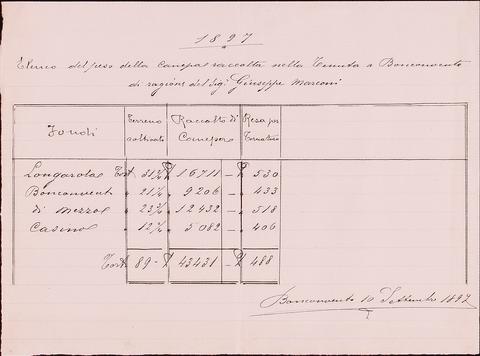 1897
Elenco del peso della Canepa raccolta nella Tenuta a Bonconvento
di ragione del Sig. Giuseppe Marconi
Fondi Terreno coltivato Raccolto di Canepa Resa per Tornatura
Longarola Torℓ 31 16711 — 530
Bonconvento " 21 " 9206 — " 433
di Mezzo " 23 " 12432 — " 518
Casino " 12 " 5082 — " 406
Torℓ 89 - 43431 — 488
Bonconvento 10 Settembre 1897